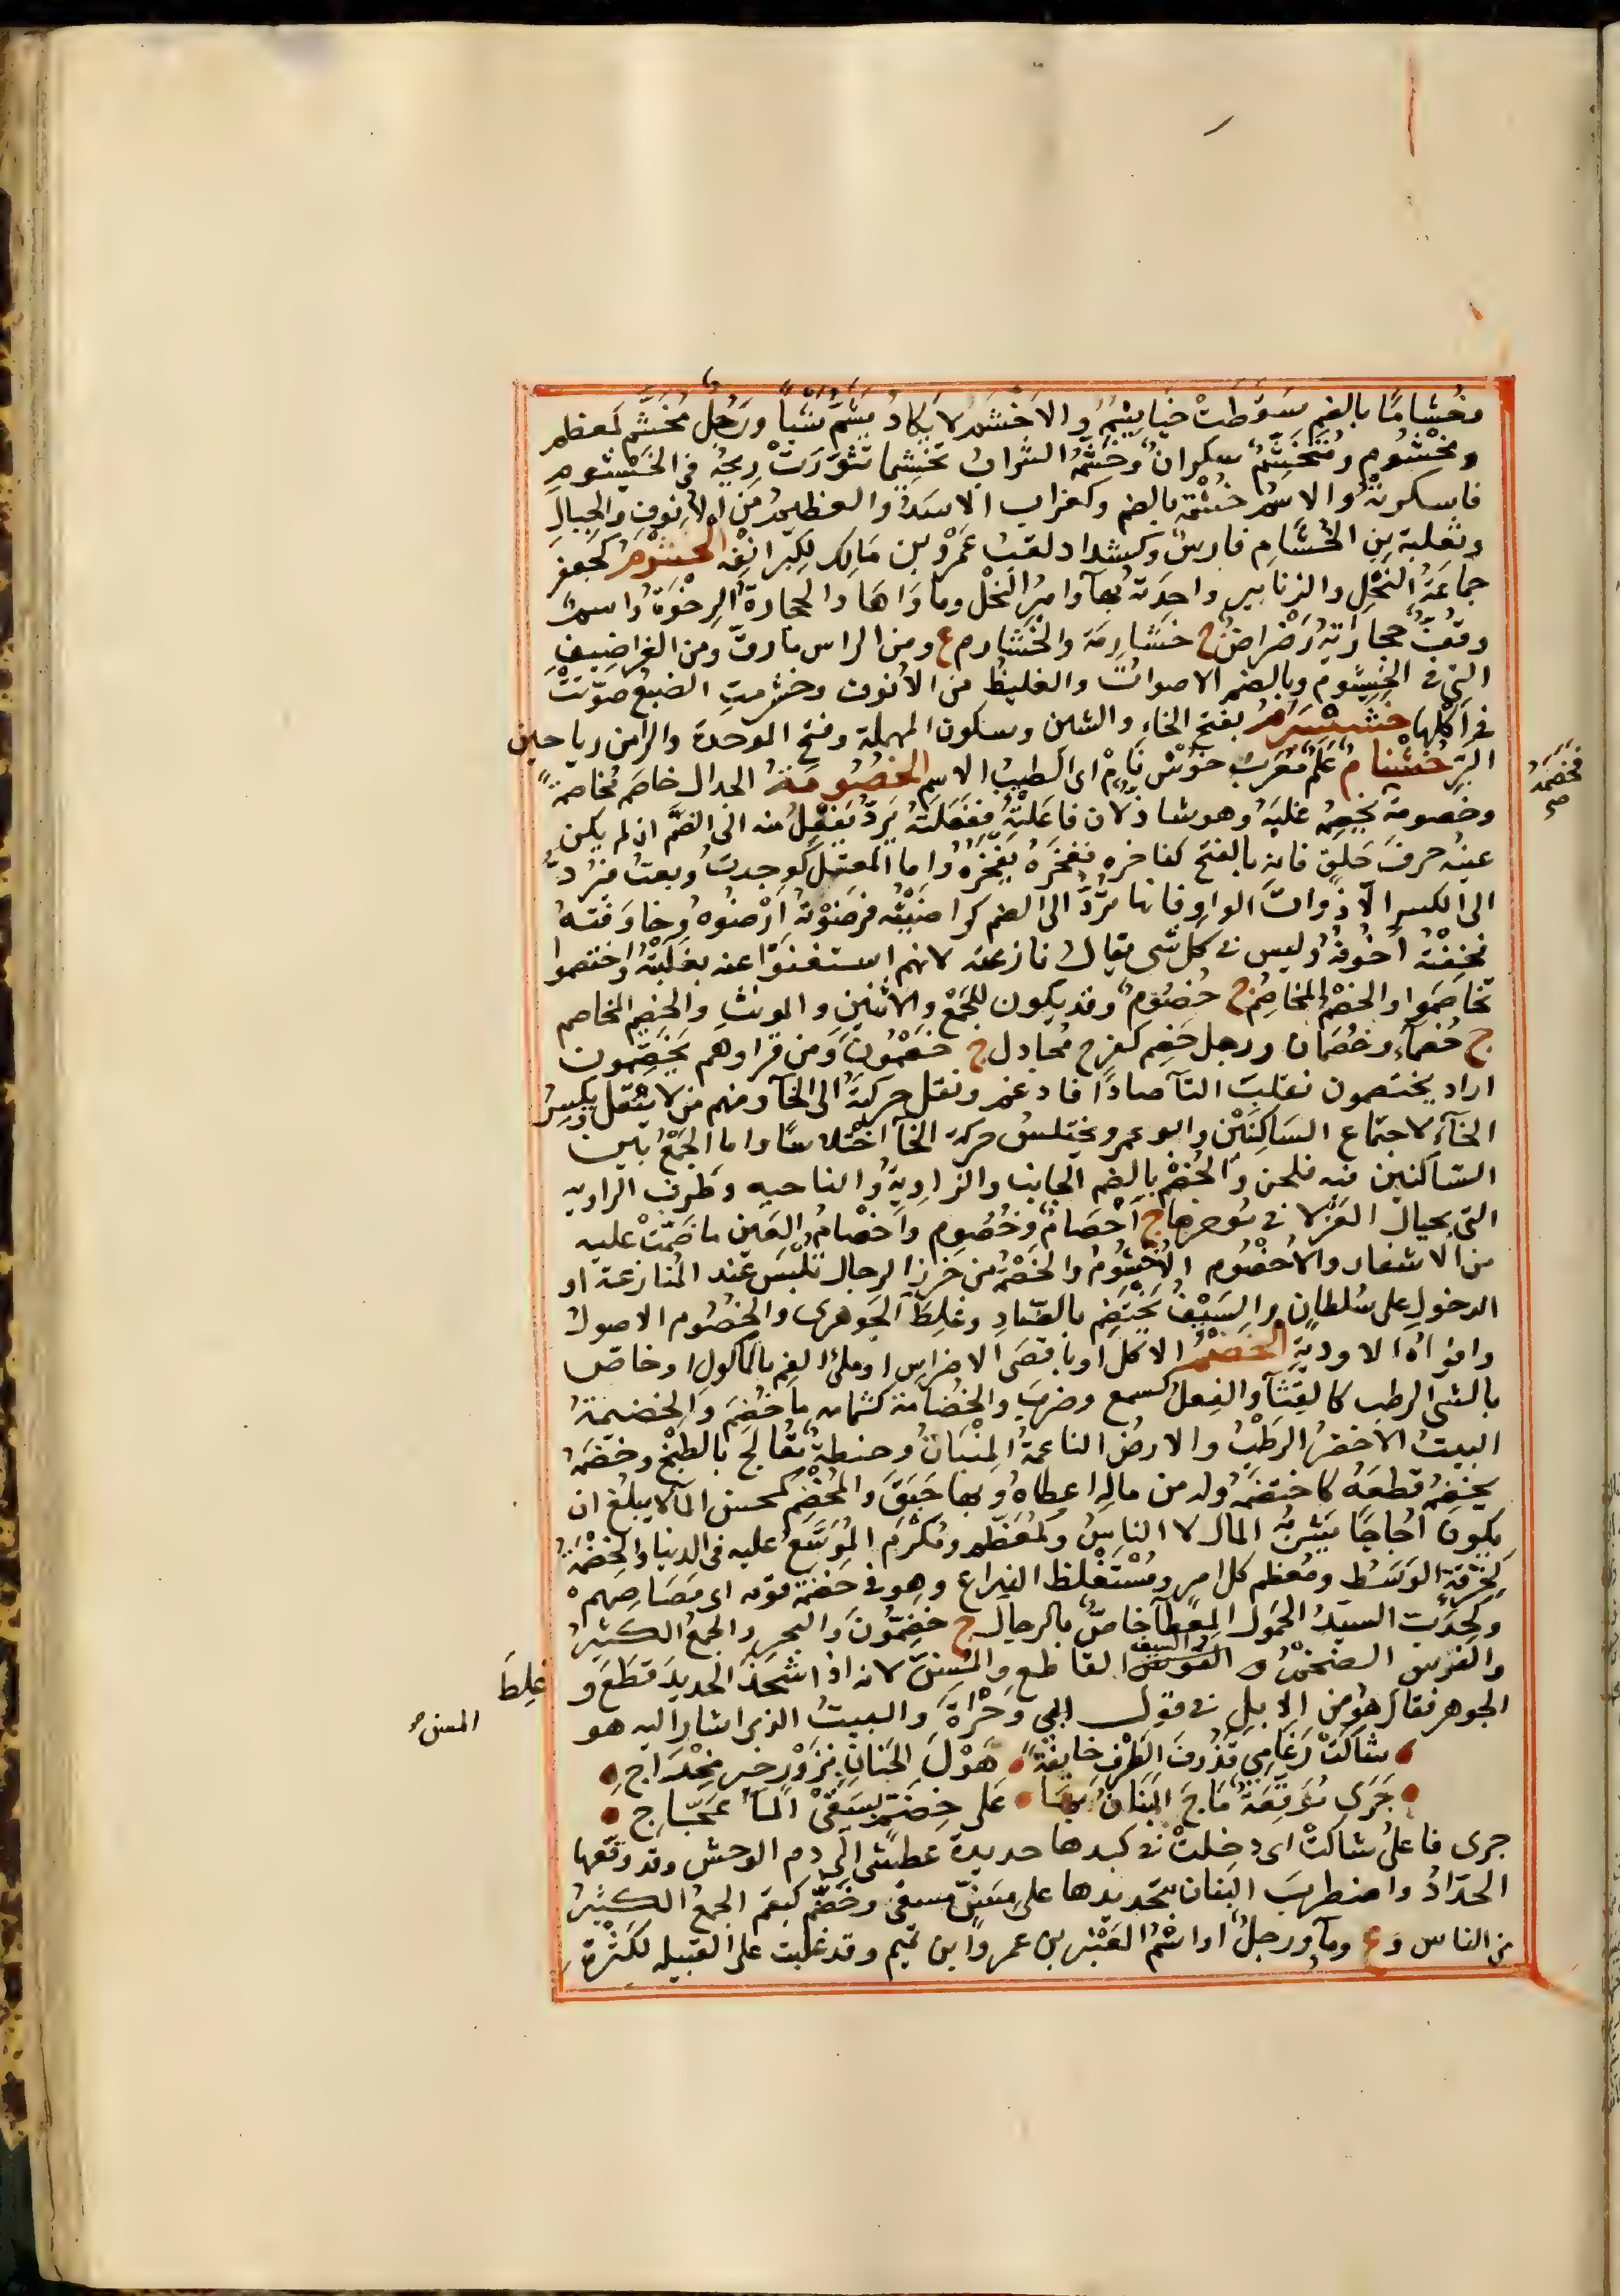 وخُشامًا بالضم سَقَطَتْ خياشِيمُهُ والاخْشَمُ لا يكادُ يَشَمُّ شيئاً ورَجُلٌ مُخَشَّم كمعظم
ومَخْشوم ومُتَخَشِّمٌ سكرانُ وخَشَّمَهُ الشرابُ تخشيما تثَوَّرَتْ رِيحُهُ فى الخَيْشوم
فاسكرتْهُ والاسم خُشْمَة بالضم وكغراب الاسَدُ والعظيمُ من الأنوف والجبال
وثعلبة بن الخُشَامِ فارسٌ وكشداد لقبُ عَمْرو بن مَالِك لكِبَر انفِه الخَشْرَمُ كجعفر
جماعَةُ النَحْلِ والزنابير واحِدَتُه بهآ وامِيرُ النَحْل وماوَاهَا والحجارةُ الرِخْوَةُ واسمٌ
وقُفٌّ حجارَتُه رَضْراضٌ ج خَشَارِمَة والخَشَارم ع ومن الراس مارقَّ ومن الغراضيف
التى فى الخَيْشُوم وبالضم الاصواتُ والغليظُ من الأنوف وخشرمتِ الضبعُ صَوَّتَتْ
فى اكْلِها خَشَسْبَرَمْ بفتح الخاء والشين وسكون المهملة وفتح الموحدة والرا من رياحين
البَرِّ خُشْنامٌ عَلَمٌ مُعَرَّب خُوْش نَامْ اى الطيب الاسم الخُصُومَةُ الجدال خاصَمَ مُخاصمةً
فخَصَمَهُ صح
وخصومة يَخْصِمُه غلَبَهُ وهو شاذ لان فاعَلْتُه ففَعَلْتُهُ يَرُدُّ يَفْعِلُ منه الى الضَّمّ ان لم يكن
عينُه حرفَ حَلْقٍ فانه بالفتح كفاخره ففخَرَهُ يَفْخَرُهُ واما المعتل كوجدتُ وبعتُ فيُرَدُّ
الى الكسرِ الّا ذواتَ الواو فانها تُرَدُّ الى الضم كراضَيْتُه فرَضَوْتُهُ ارْضُوهُ وخاوفنى
فخُفْتُه اَخُوفُهُ وليس فى كل شى يقال نازعته لانهم استغنَوا عنه بغَلَبْتُهُ واختصموا
تخاصَموا والخصْمُ المخاصِمُ ج خُصُومٌ وقد يكون للجمْعِ والاثنين والمونثِ والخَصِيمُ المخاصم
ج خُصَمآءُ وخُصْمان ورجل خَصِم كفرح مُجادل ج خَصِمُونَ ومن قرا وهم يَخَصِّمون
اراد يختصمون فقلبَتِ التآ صادًا فادغم ونقل حركتَهُ الى الخآ ومنهم من لا ينقل ويكسِرُ
الخآءَ لاجتماع السَاكِنَيْن وابو عمرو يختلِسُ حركة الخآ اختلاسًا واما الجَمْعُ بين
الساكنين فيه فلحن والخُصْمُ بالضم الجانب والزاوِيةُ والناحيه وطَرف الراويه
التى بحيال العَزْلَا فى مُؤخرها ج اَخْصَامٌ وخُصُوم واَخْصامُ العين ما ضَمَّتْ عليه
من الاشفار والاُخْصُوم الاُخْسُومُ والخَصْمَةُ من خَرز الرجال تُلْبَس عند المُنازعة او
الدخولِ على سُلطانٍ والسَيْفُ يَخْتَصِم بالصّاد وغلِطَ الجَوهرى والخُصُوم الاصول
وافواهُ الاوديةِ الخَضْمُ الاكل او باقصَى الاضراسِ او مِلْئُ الفم بالماكول او خاصّ
بالشئ الرطب كالقِثآ والفِعلُ كسمع وضربَ والخُضَامة كثمامه ما خُضِمَ والخضيمةُ
النبتُ الاخضرُ الرَطْبُ والارضُ الناعمةُ المِنْبَاتُ وحنطةٌ تُعالَج بالطَبْخ وخضَمَهُ
يخضِمُه قطعَهُ كاختضَمَهُ وله من مالِه اعطاهُ وبها حَبَقَ والمُخْضِم كمحسن المآ لا يبلُغ ان
يكون اُجاجًا يشربُه المال لا الناسُ وكمُعَظَّم ومُكْرَم المُوَسَّع عليه فى الدنيا والخضمة
كحُزُقَّةٍ الوَسَطُ ومُعظم كل امر ومُسْتَغْلَظُ الذراع وهو فى خُضُمَّة قومه اى مُصَاصِهم
وكخِدَبّ السيدُ الحَمُول المِعْطآ خاصٌّ بالرجال ج خِضَمُّونَ والبحر والجمعُ الكثيرُ
والفرس الضخمُ و القوس والسيف القاطع والمُسِنّ لانه اذا شحَذَ الحديدَ قَطَعَ و غلِطَ
الجوهر فقال هو من الابِل فى قول ابى وَجْزةَ والبيتُ الذى اشار اليه هو
المسن
• شاكَتْ رُغامى قَذُوفَ الطَرْفِ خايفةٍ • هَوْلَ الجَنانِ نَزُوْرٍ خير مِخْدَاج •
• جَرَى مُوَقَّعَةٌ مَاجَ البَنَانُ بها • على خِضَمٍّ يُسَقَّى المآ عَجَّاج •
جرى فاعلُ شاكَتْ اى دخلتْ فى كبدها حديدة عطشى الى دم الوحش وقد وقعها
الحدّادُ واضطربَ البَنان بتحديدها على مِسَنٍّ مسقى وخَضَّم كبقَّم الجمعُ الكثيرُ
من الناس و ع ومآ ورجلٌ او اسْمُ العَنْبَر بن عمرو ابن تميم وقد غلبت على القبيله لكَثْرة